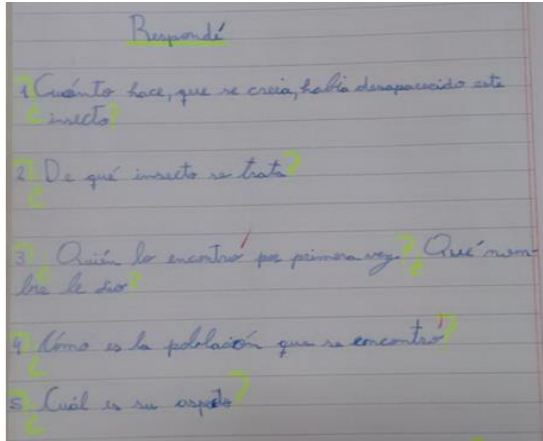 Respondé
1 ¿Cuánto hace, que se creia, había desaparecido este
insecto?
2 ¿De qué insecto se trata?
3 ¿Quién lo encontró por primera vez? ¿Qué nom-
bre le dio?
4 ¿Cómo es la población que se encontró?
5 ¿Cuál es su aspecto?